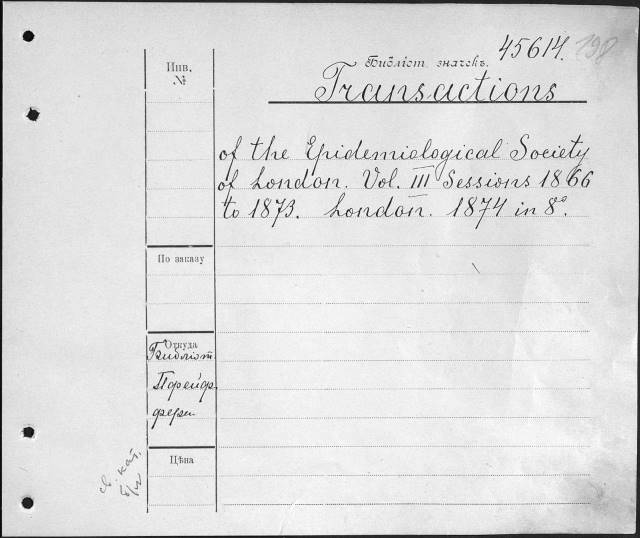 Инв.
№
Библіот. значекъ. 45614. 198
Transactions
of the Epidemiological Society
of London. Vol. III Sessions 1866
to 1873. London. 1874 in 8°.
По заказу
Откуда
Библіот.
Цѣна